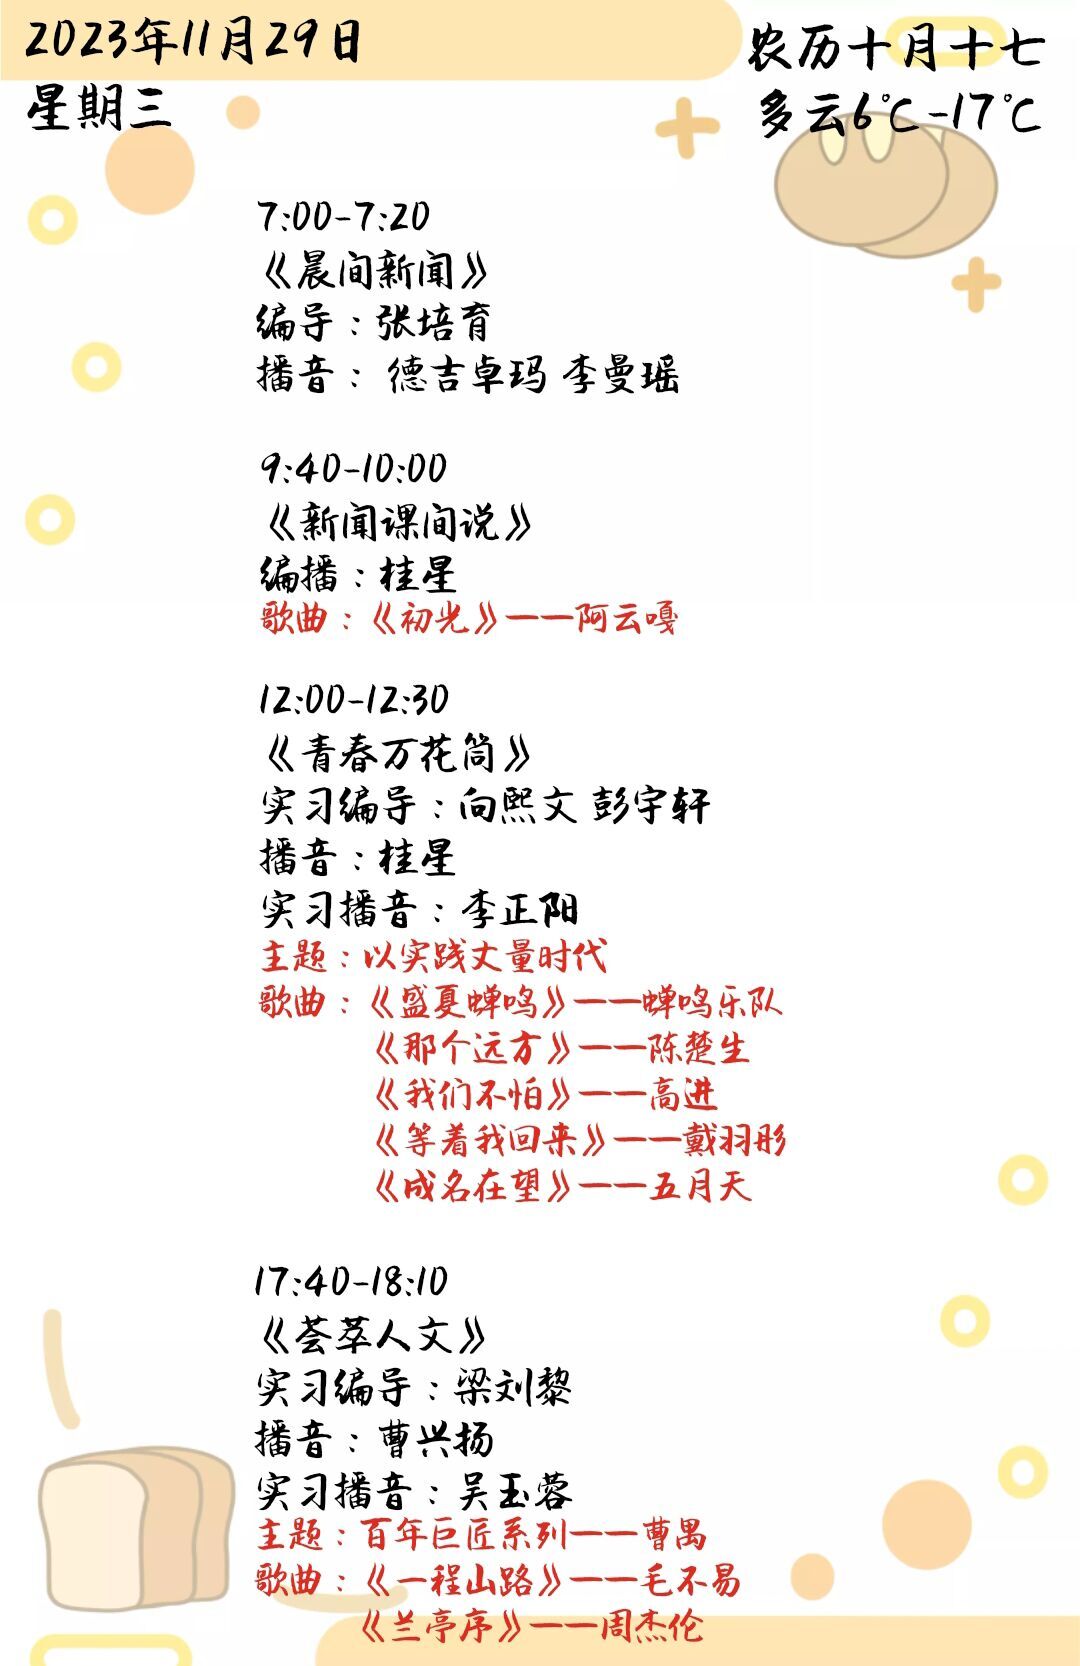 2023年11月29日
星期三
农历十月十七
多云6℃-17℃
7:00-7:20
《晨间新闻》
编导：张培育
播音： 德吉卓玛 李曼瑶
9:40-10:00
《新闻课间说》
编播：桂星
歌曲：《初光》——阿云嘎
12:00-12:30
《青春万花筒》
实习编导：向熙文 彭宇轩
播音：桂星
实习播音：李正阳
主题：以实践丈量时代
歌曲：《盛夏蝉鸣》——蝉鸣乐队
《那个远方》——陈楚生
《我们不怕》——高进
《等着我回来》——戴羽彤
《成名在望》——五月天
17:40-18:10
《荟萃人文》
实习编导：梁刘黎
播音：曹兴扬
实习播音：吴玉蓉
主题：百年巨匠系列——曹禺
歌曲：《一程山路》——毛不易
《兰亭序》——周杰伦